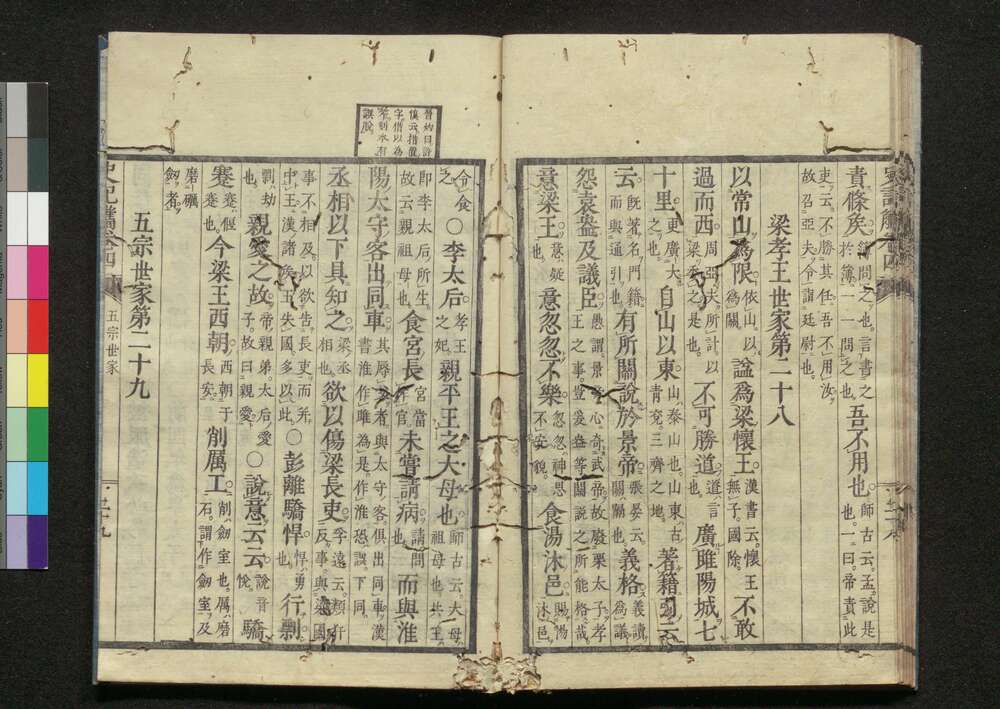 責條矦。簿問之也言書之於簿一一問之也吾不用也。師古云孟說是也一曰帝責此
吏云不勝其任吾不用汝故召亞夫令詣廷尉也
梁孝王世家第二十八
以常山爲限。依山以爲關諡爲梁懷王。漢書云懷王無子國除不敢
過而西。周亞夫所計以梁委之是也不可勝道。道言也廣睢陽城七
十里。更廣大之也自山以東。山泰山也山東古青兗三齊之地著籍引云
云。旣著名門籍而與通引也有所關說於景帝。張晏云關隔也義格。義讀爲議
怨袁盎及議臣。愚謂景帝故廢栗太子孝王之事豈爰盎等關說之所能格哉
意梁王。意疑也意忽忽不樂。忽忽神思不安貌食湯沐邑。賜湯沐邑
令食之○李太后。孝王之妃親平王之大母也。師古云大母祖母也共王
卽李太后所生故云親祖母也食官長。宮當作官未嘗請病。請問也而與淮
陽太守客出同車。其辱者與太守客俱出同車漢書淮作睢爲是作淮恐誤下同
丞相以下具知之。梁丞相也欲以傷梁長吏。李遠云類犴反事與梁國
事不相及以欲告長吏而所中王漢諸矦王失國多以此○彭離驕悍。悍勇也行剽
剽劫也親愛之故。帝親弟太后愛子故曰親愛○說意云云。說音悅驕
蹇。蹇偃蹇也今梁王西朝。西朝于長安削厲工。削劒室也厲磨石謂作劒室及
磨礪劒者
五宗世家第二十九
五宗世家
晉灼曰許愼云措置字借以爲